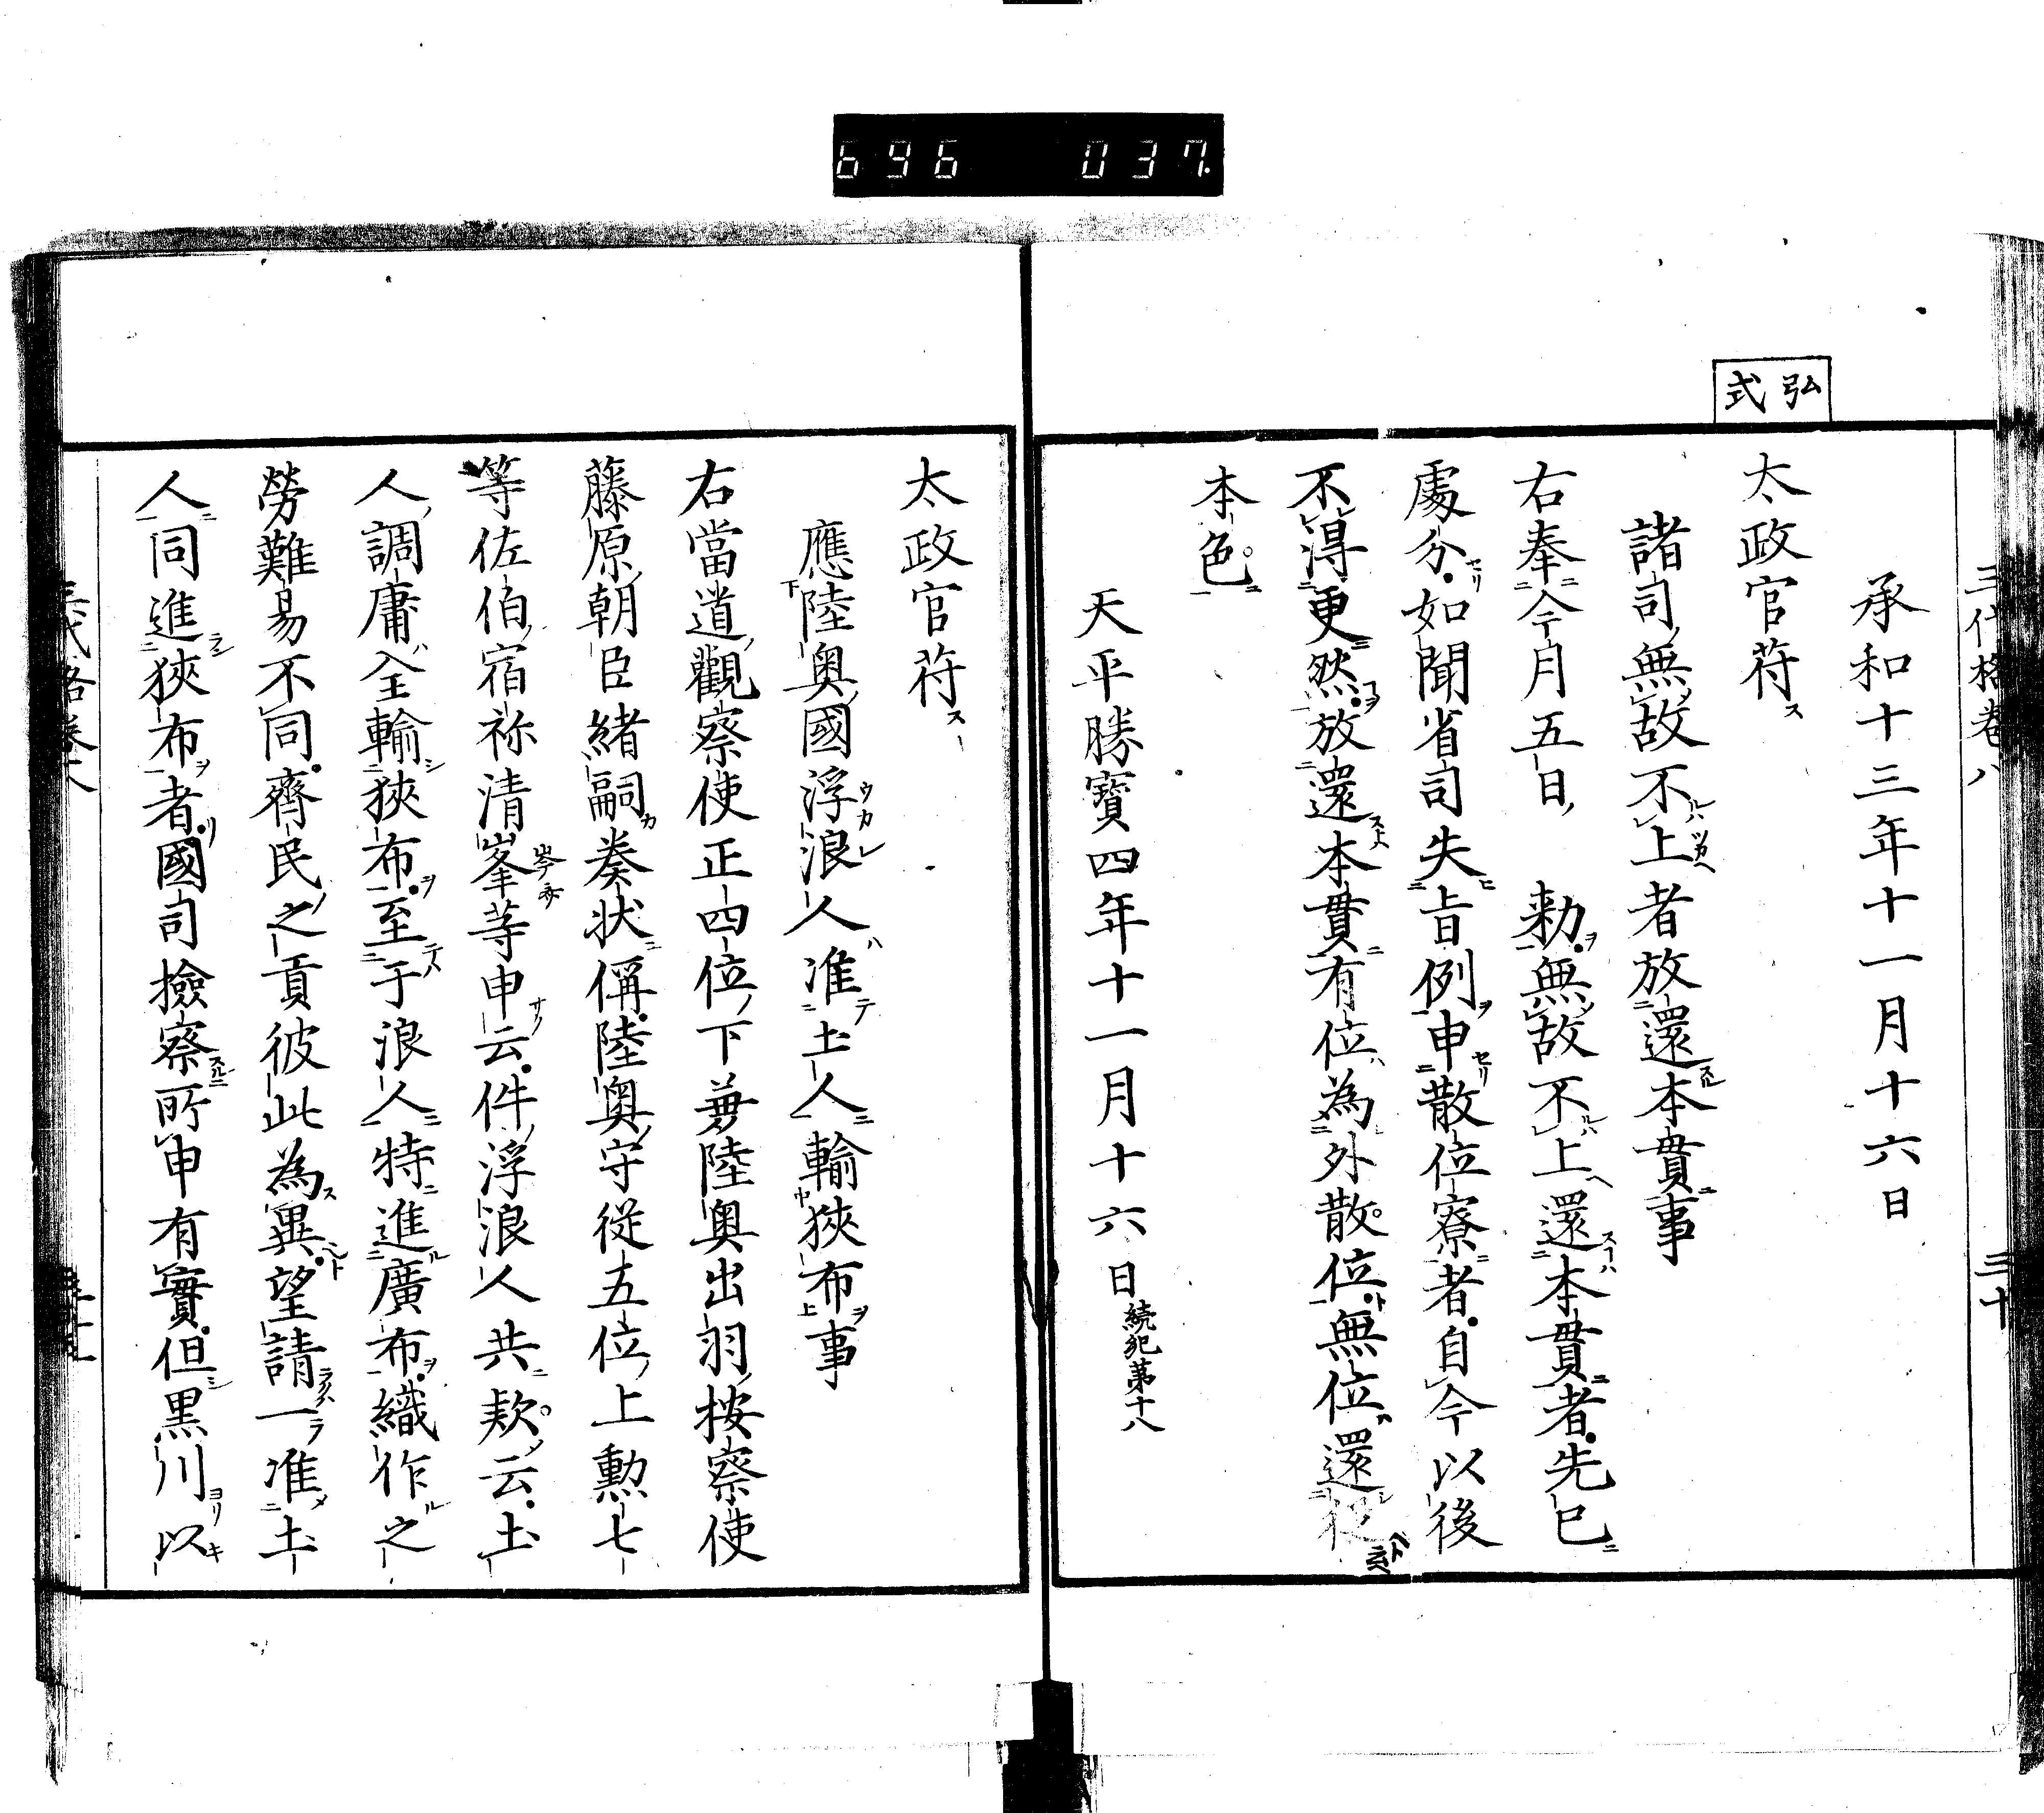 696 037
弘式
三代格巻八 三十
承和十三年十一月十六日
太政官苻
諸司無故不上者放還本貫事
右奉今月五日 勅無故不上還本貫者先已
處分如聞省司失旨例申散位寮者自今以後
不得更然放還本貫有位為外散位無位還従
本色
天平勝寳四年十一月十六日続紀第十八
太政官苻
應陸奥國浮浪人准土人輸狹布事
右當道觀察使正四位下兼陸奥出羽按察使
藤原朝臣緒嗣奏状偁陸奥守従五位上勲七
等佐伯宿祢清峯等申云件浮浪人共欵云土
人調庸全輸狹布至于浪人特進廣布織作之
勞難易不同齊民之貢彼此為異望請一准土
人同進狹布者國司撿察所申有實但黒川以